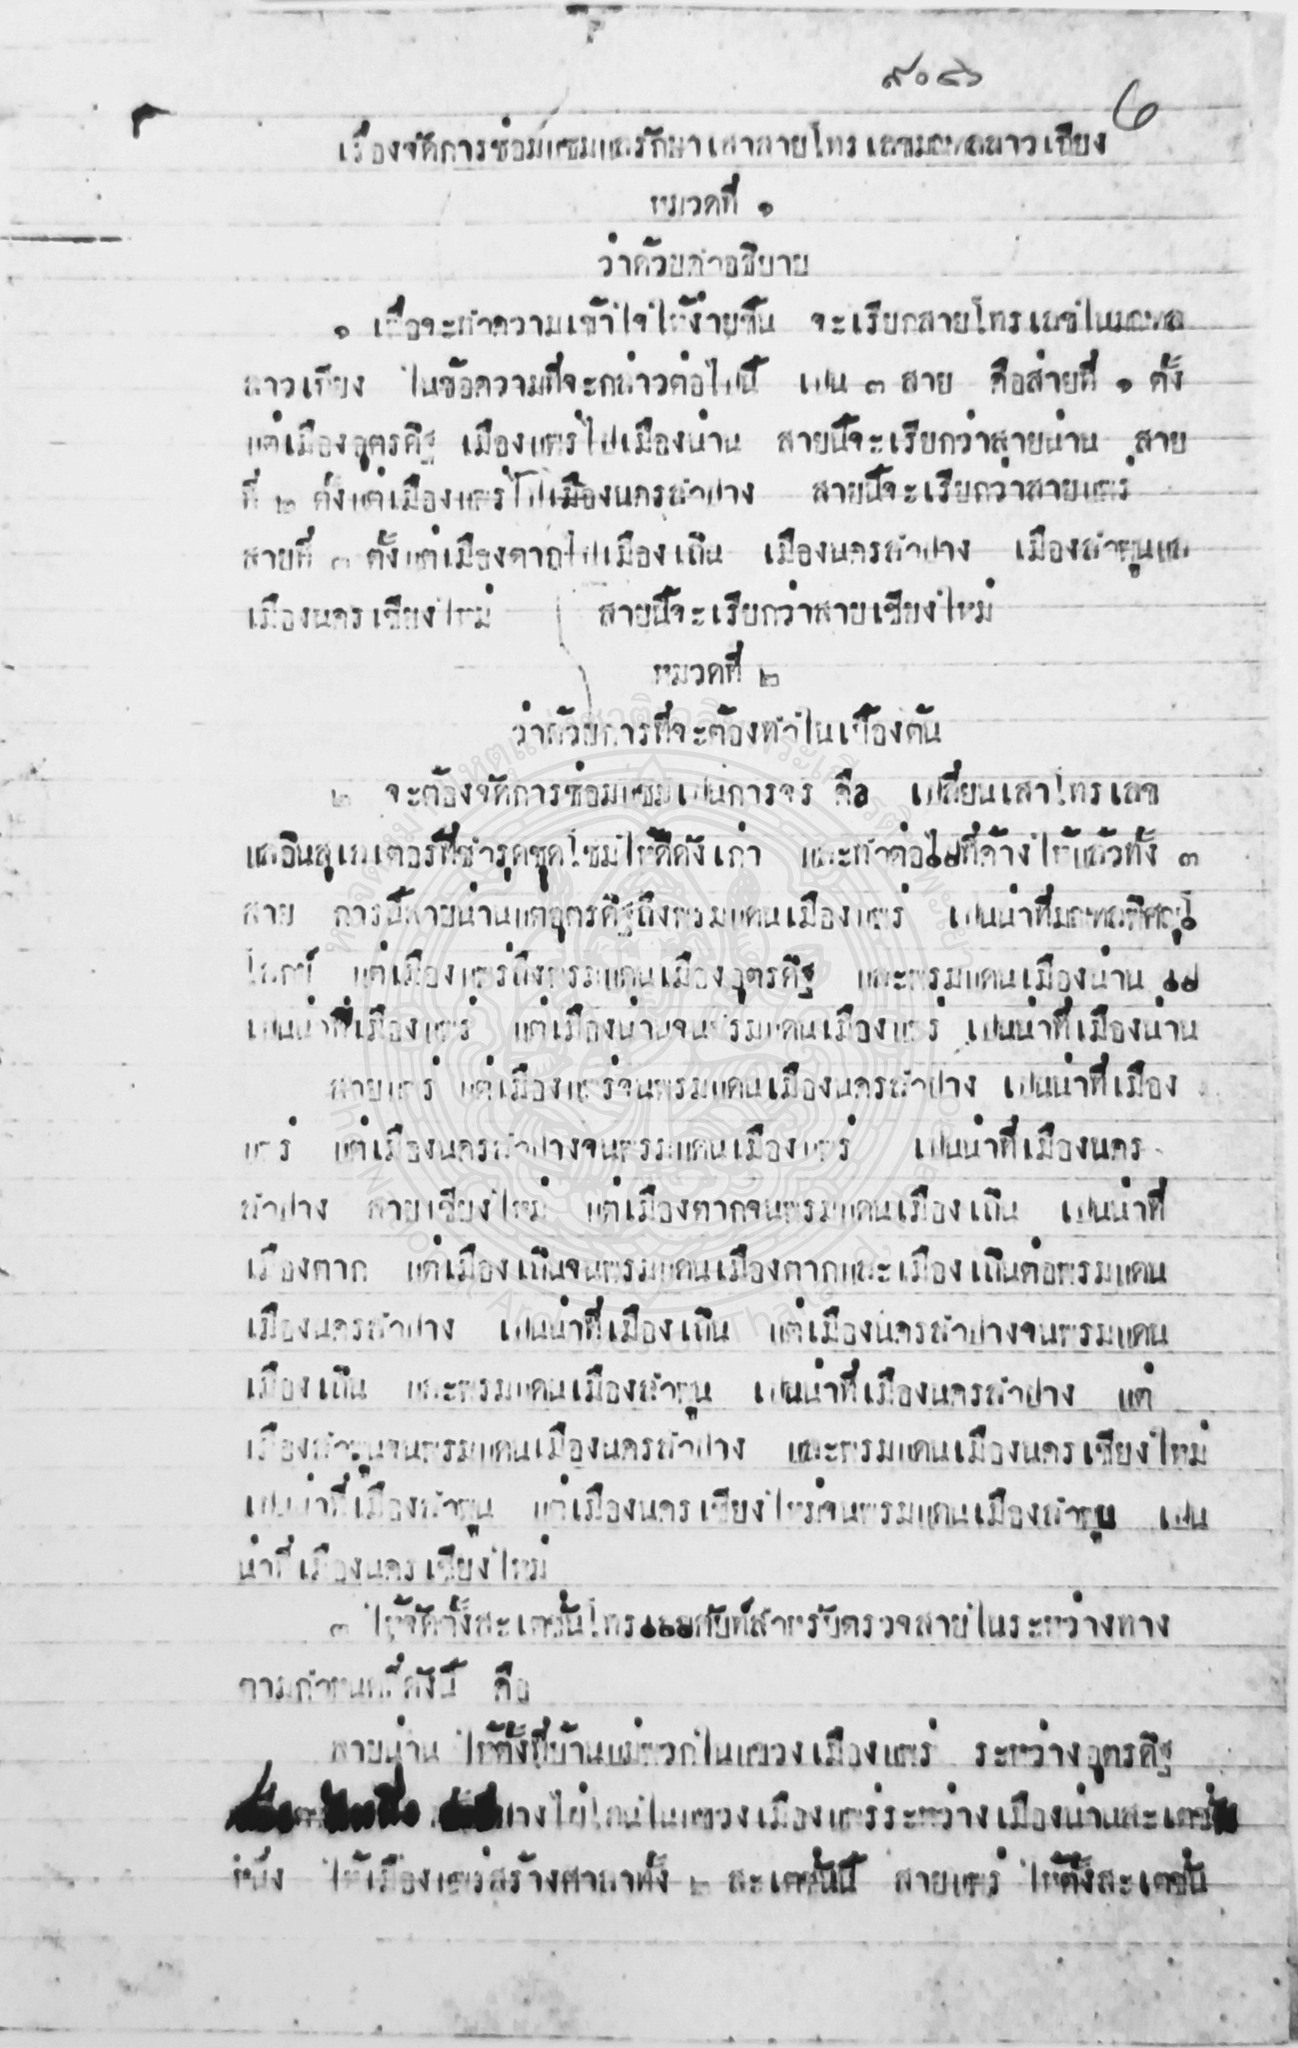 ๙๐๕๖
6
เรื่องจัดการซ่อมแซมแลรักษาเสาสายโทรเลขมณฑลลาวเฉียง
หมวดที่ ๑
ว่าด้วยคำอธิบาย
๑ เพื่อจะทำความเข้าใจให้ง่ายขึ้น จะเรียกสายโทรเลขในมณฑล
ลาวเฉียง ในข้อความที่จะกล่าวต่อไปนี้ เปน ๓ สาย คือสายที่ ๑ ตั้ง
แต่เมืองอุตรดิฐ เมืองแพร่ไปเมืองน่าน สายนี้จะเรียกว่าสายน่าน สาย
ที่ ๒ ตั้งแต่เมืองแพร่ไปเมืองนครลำปาง สายนี้จะเรียกว่าสายแพร่
สายที่ ๓ ตั้งแต่เมืองตากไปเมืองเถิน เมืองนครลำปาง เมืองลำพูนแล
เมืองนครเชียงใหม่ สายนี้จะเรียกว่าสายเชียงใหม่
หมวดที่ ๒
ว่าด้วยการที่จะต้องทำในเบื้องต้น
๒ จะต้องจัดการซ่อมแซมเปนการจร คือ เปลี่ยนเสาโทรเลข
แลอินสุเลเตอร์ที่ชำรุดซุดโซมให้ดีดังเก่า และทำต่อไปที่ค้างไว้แล้วทั้ง ๓
สาย การนี้สายน่านแต่อุตรดิฐถึงพรมแดนเมืองแพร่ เปนน่าที่มณฑลพิศณุโ
โลกย์ แต่เมืองแพร่ถึงพรมแดนเมืองอุตรดิฐ และพรมแดนเมืองน่าน
เปนน่าที่เมืองแพร่ แต่เมืองน่านจนพรมแดนเมืองแพร่ เปนน่าที่เมืองน่าน
สายแพร่ แต่เมืองแพร่จนพรมแดนเมืองนครลำปาง เปนน่าที่เมือง
แพร่ แต่เมืองนครลำปางจนพรมแดนเมืองแพร่ เปนน่าที่เมืองนคร
ลำปาง สายเชียงใหม่ แต่เมืองตากจนพรมแดนเมืองเถิน เปนน่าที่
เมืองตาก แต่เมืองเถินจนพรมแดนเมืองตากและเมืองเถินต่อพรมแดน
เมืองนครลำปาง เปนน่าที่เมืองเถิน แต่เมืองนครลำปางจนพรมแดน
เมืองเถิน และพรมแดนเมืองลำพูน เปนน่าที่เมืองนครลำปาง แต่
เมืองลำพูนจนพรมแดนเมืองนครลำปาง และพรมแดนเมืองนครเชียงใหม่
เปนน่าที่เมืองลำพูน แต่เมืองนครเชียงใหม่จนพรมแดนเมืองลำพูน เปน
น่าที่เมืองนครเชียงใหม่
๓ ให้จัดตั้งสะเตชั่นโทรศัพท์สำหรับตรวจสายในระหว่างทาง
ตามกำหนดที่ดังนี้ คือ
สายน่าน ให้ตั้งที่บ้านแม่พวกในแขวงเมืองแพร่ ระหว่างอุตรดิฐ
ในแขวงเมืองแพร่ระหว่างเมืองน่านสะเตชั่น
หนึ่ง ให้เมืองแพร่สร้างศาลาทั้ง ๒ สะเตชั่นนี้ สายแพร่ ให้ตั้งสะเตชั่น
หอจดหมายเหตุแห่งชาติ
National Archives of Thailand